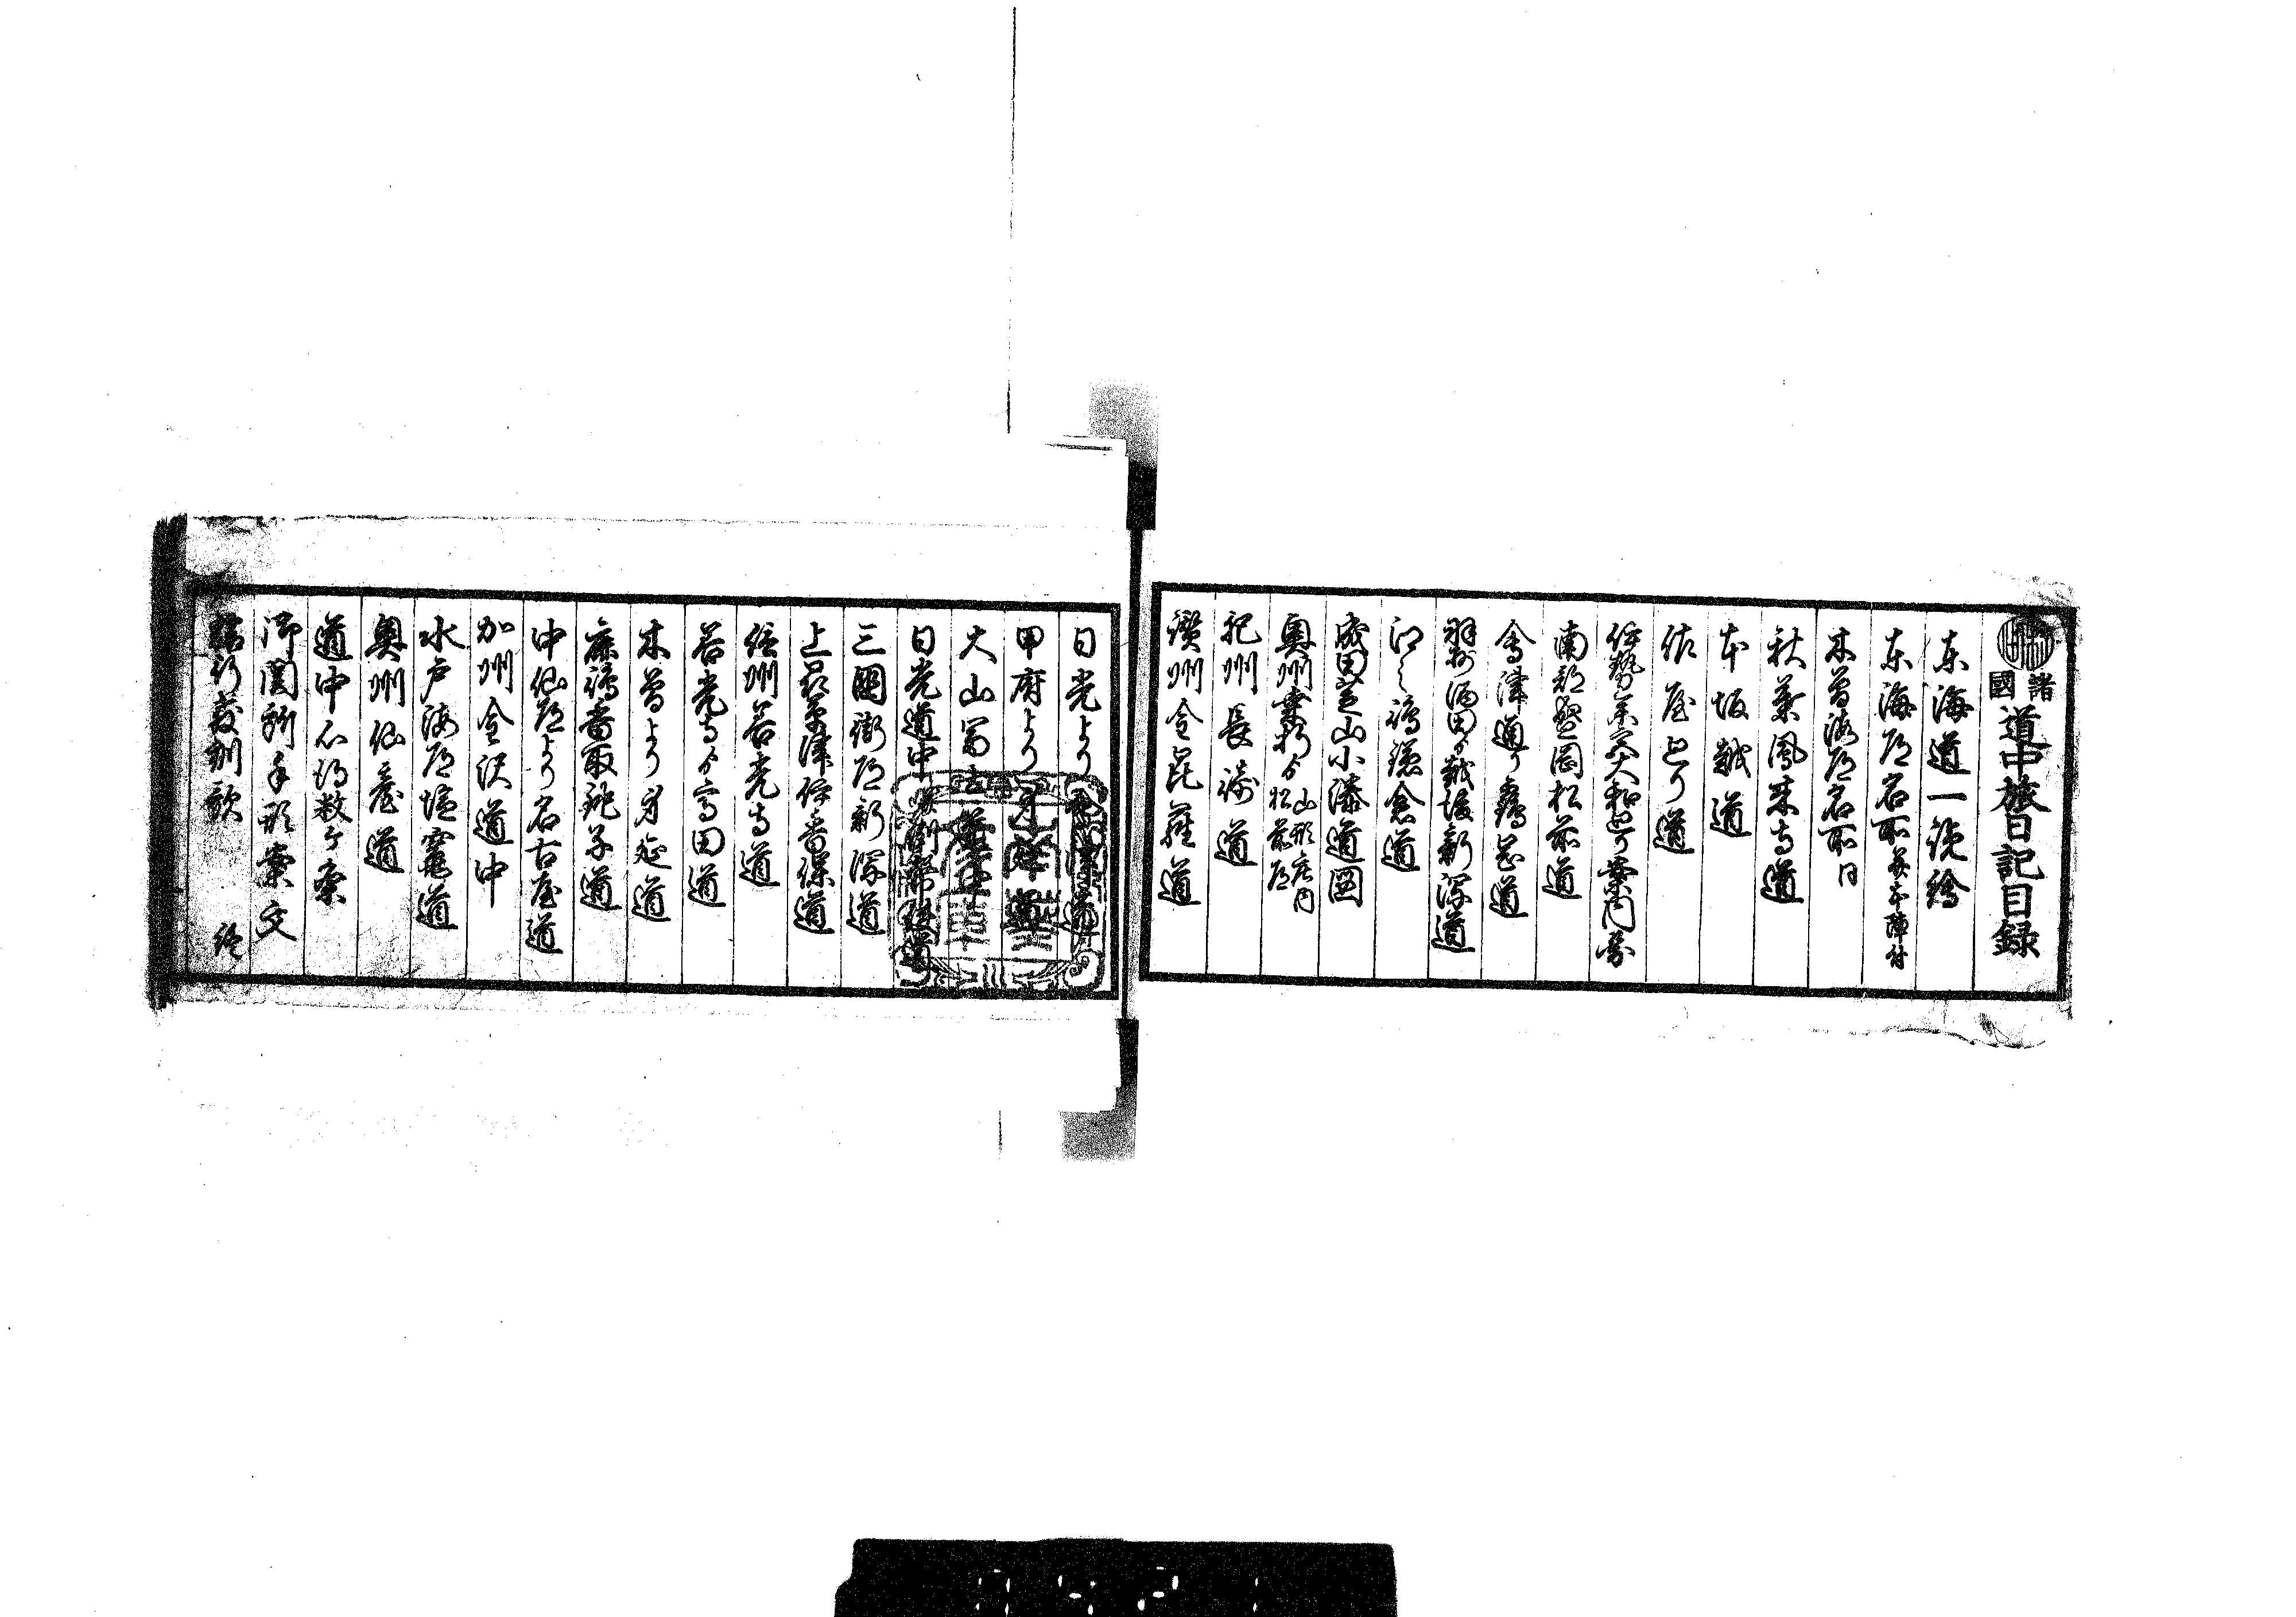 諸國 道中旅日記目録
東海道一読絵
東海道名所并本陣付
木曽海道名所同
秋葉鳳来寺道
本坂越道
佐屋廻り道
伊勢参宮大和廻り案内旁
南部盛岡松前道
会津通り鶴岡道
羽州酒田ゟ越後新潟道
江之嶋鎌倉道
成田芝山小湊道図
奥州桑折ゟ山形庄内松前道
紀州長崎道
讃州金毘羅道
日光より会津道
甲府より身延道
大山富士
日光道中
三國街道新潟道
上州草津伊香保道
信州善光寺道
善光寺ゟ高田道
木曽より身延道
鹿嶋香取銚子道
中仙道より名古屋道
加州金沢道中
水戸海道塩竃道
奥州仙台道
道中心得数ケ条
御関所手形案文
旅行教訓歌 終